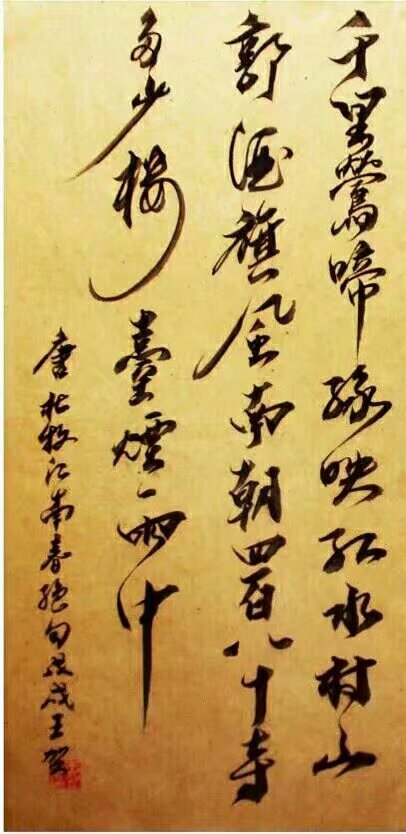 千里鶯啼綠映紅水村山
郭酒旗風南朝四百八十寺
多少樓臺煙雨中
唐杜牧江南春絕句戌王賀